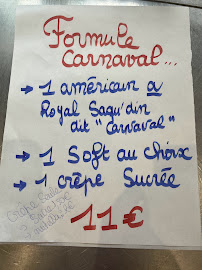 Formule
Carnaval...
→ 1 américain a
Royal Saqu'din
dit "Carnaval"
→ 1 Soft au choix
→ 1 crêpe Sucrée
11€